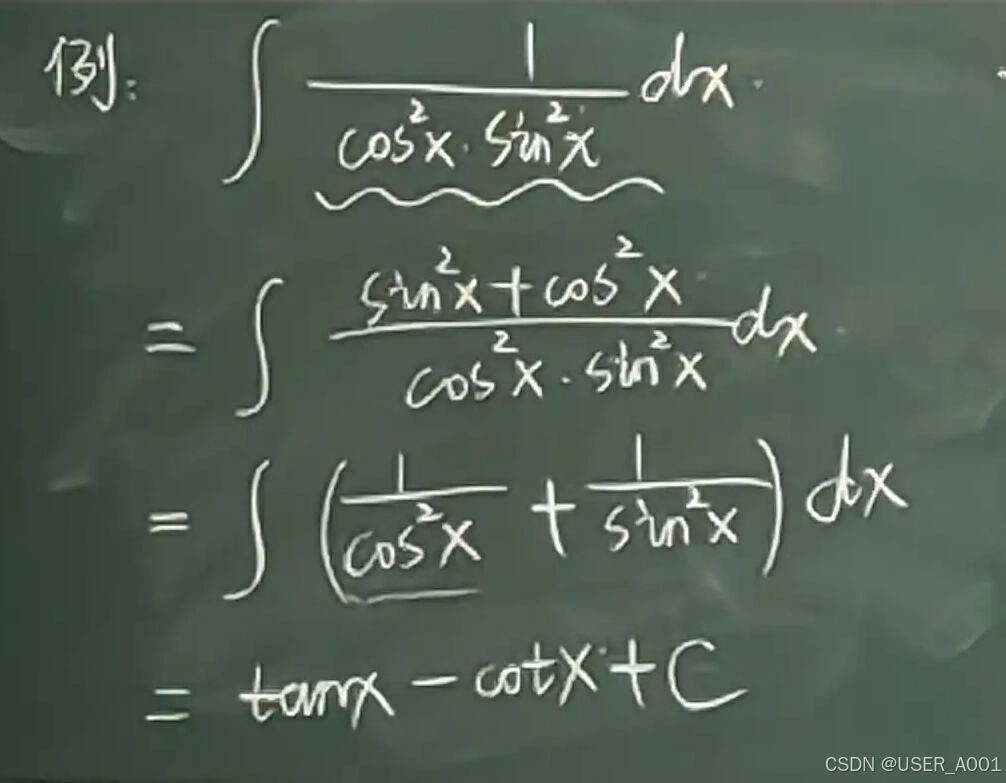 例: ∫ 1/(cos²x · sin²x) dx
= ∫ (sin²x + cos²x)/(cos²x · sin²x) dx
= ∫ (1/cos²x + 1/sin²x) dx
= tanx − cotx + C
CSDN @USER_A001